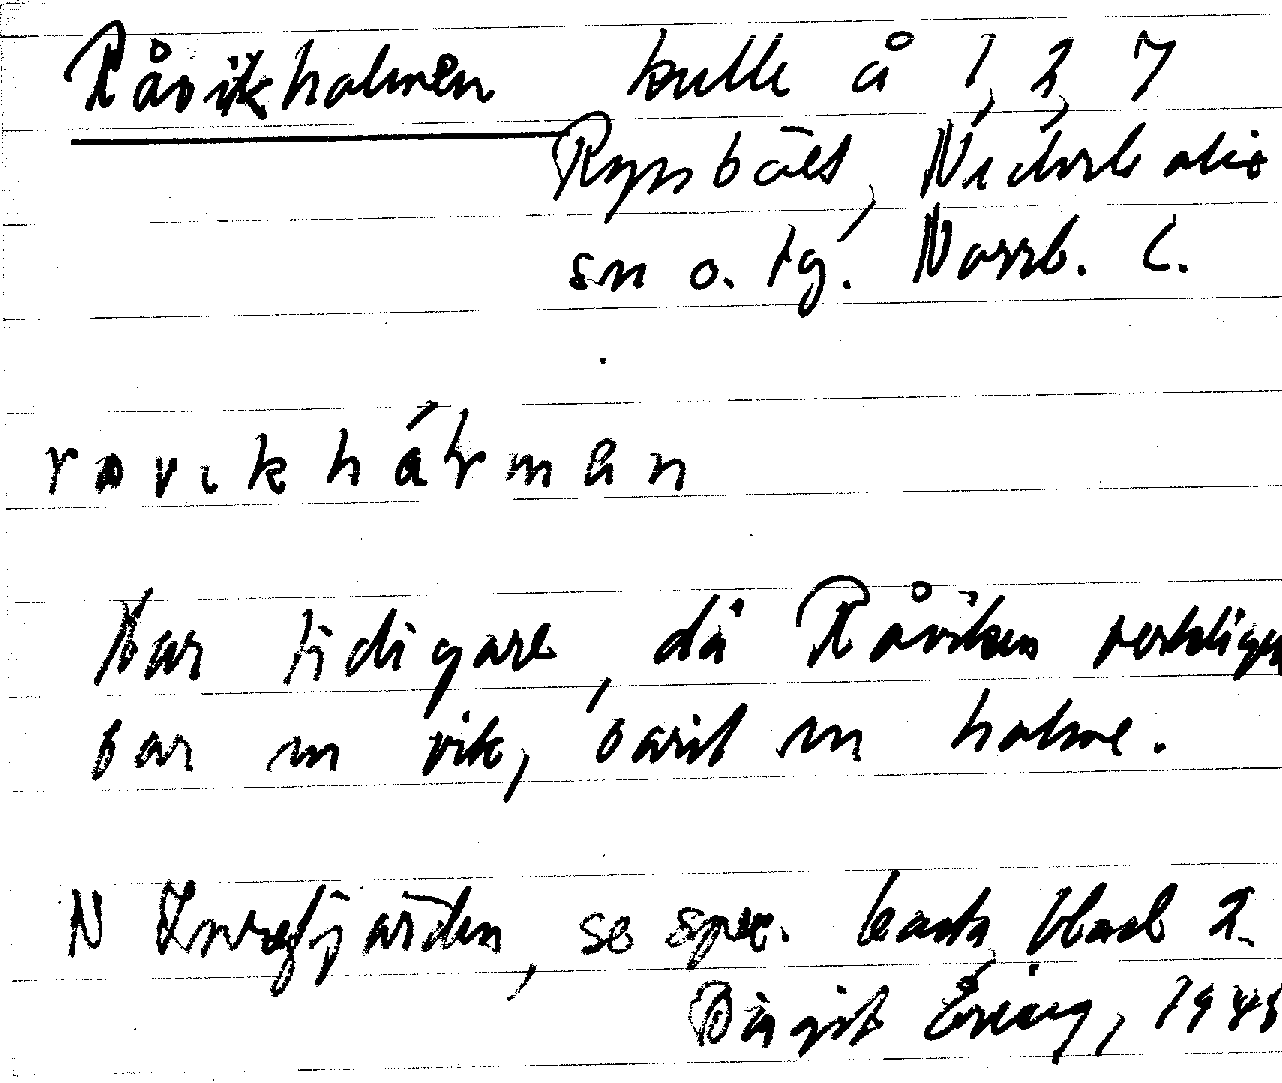 Råvikholmen kulle å 1, 2, 7
Rysbält, Nederkalix
sn o. tg. Norrb. l.
r o v i k h å l m a n
Har tidigare, då Råviken verkligen
var en vik, varit en holme.
N Inrefjärden, se spec. karta, blad 2.
Birgit Ering, 194